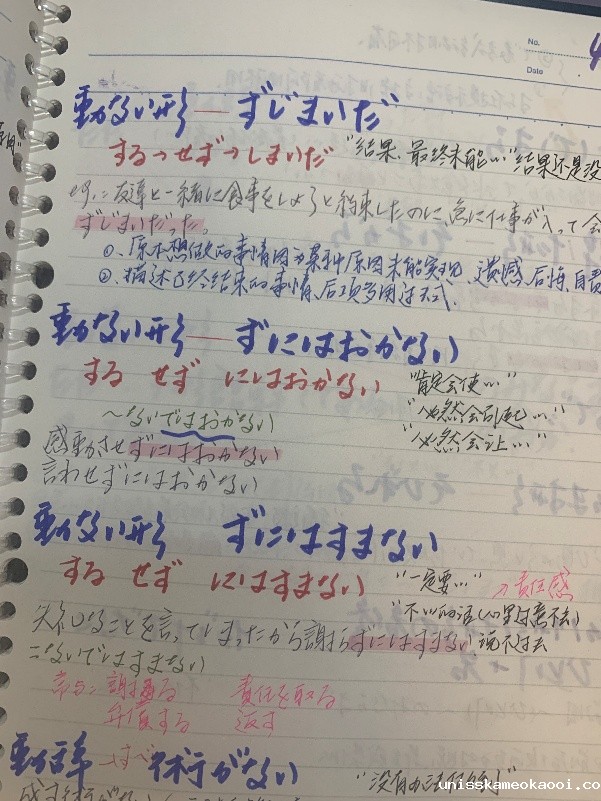 No.
Date
動ない形 — ずじまいだ
する→せず→しまいだ "結果、最終未能…" "结果还是没
eg.:友達と一緒に食事をしようと約束したのに、急に仕事が入って会
ずじまいだった。
①、原本想做的事情因为某种原因未能实现、遗憾、后悔、自责
②、描述已经结束的事情、后项多用过去式.
動ない形 — ずにはおかない
する せず にはおかない "肯定会使…"
"必然会引起…"
~ないではおかない
"必然会让…"
感動させずにはおかない
言わせずにはおかない
動ない形 ずにはすまない
する せず にはすまない "一定要…" →责任感
"不…的话心里过意不去"
失礼なことを言ってしまったから謝らずにはすまない 说不过去
=ないではすまない
謝る 責任を取る
弁償する 返す
動辞 →すべ 術がない
"没有办法
unisskameokaooi.co